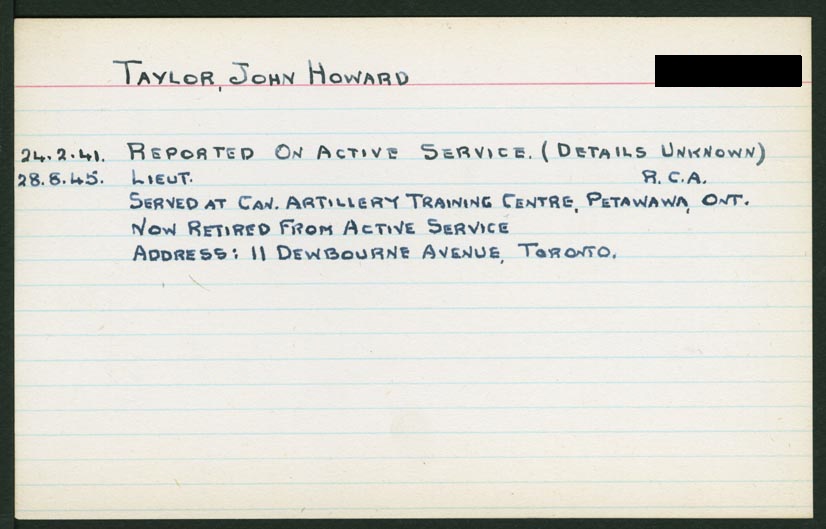 TAYLOR, JOHN HOWARD
24.2.41. REPORTED ON ACTIVE SERVICE. (DETAILS UNKNOWN)
28.8.45. LIEUT. R.C.A.
SERVED AT CAN. ARTILLERY TRAINING CENTRE, PETAWAWA, ONT.
NOW RETIRED FROM ACTIVE SERVICE
ADDRESS: 11 DEWBOURNE AVENUE, TORONTO.